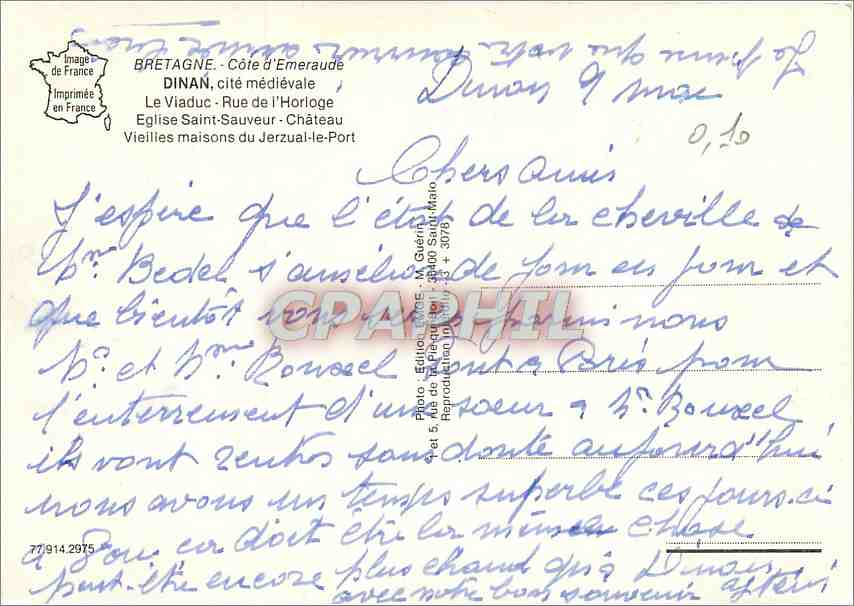 Image
de France
Imprimée
en France
BRETAGNE. - Côte d'Emeraude
DINAN, cité médiévale
Le Viaduc - Rue de l'Horloge
Eglise Saint-Sauveur - Château
Vieilles maisons du Jerzual-le-Port
Dinan 9 mai
0,10
Chers Amis
J'espère que l'état de la cheville de
Mme Bedel s'améliore de jour en jour et
que bientôt vous serez parmi nous
Mr et Mme Rouxel sont à Paris pour
l'enterrement d'une soeur à Mr Rouxel
ils vont rentrer sans doute aujourd'hui
nous avons un temps superbe ces jours-ci
à ça doit être la même chose
peut-être encore plus chaud qu'à Dinan
avec notre bon souvenir
77.914.2975
Photo : Editions - M. Guérin
1 et 5, rue de la - 35400 Saint-Malo
Reproduction interdite + 3078
CPARPHIL